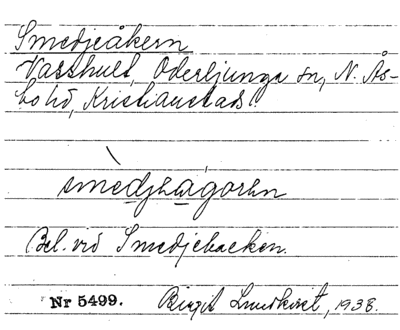 Smedjeåkern
Vasshult, Oderljunga sn, N. Ås-
bo hd, Kristianstads l.
Bel. vid Smedjebacken.
Nr 5499. Birgit Lundkvist, 1938.